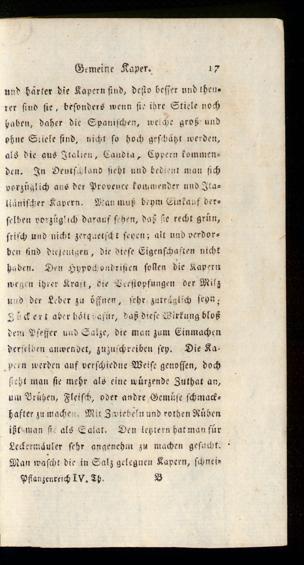 Gemeine Kaper. 17
und härter die Kapern sind, desto besser und theu-
rer sind sie, besonders wenn sie ihre Stiele noch
haben, daher die Spanischen, welche groß und
ohne Stiele sind, nicht so hoch geschätzt werden,
als die aus Italien, Candia, Cypern kommen-
den. In Deutschland sieht und bedient man sich
vorzüglich aus der Provence kommender und Ita-
liänischer Kapern. Man muß beym Einkauf der-
selben vorzüglich darauf sehen, daß sie recht grün,
frisch und nicht zerquetscht seyen; alt und verdor-
ben sind diejenigen, die diese Eigenschaften nicht
haben. Den Hypochondristen sollen die Kapern
wegen ihrer Kraft, die Verstopfungen der Milz
und der Leber zu öffnen, sehr zuträglich seyn;
Zückert aber hält dafür, daß diese Wirkung bloß
dem Pfeffer und Salze, die man zum Einmachen
derselben anwendet, zuzuschreiben sey. Die Ka-
pern werden auf verschiedne Weise genossen, doch
sieht man sie mehr als eine würzende Zuthat an,
um Brühen, Fleisch, oder andre Gemüse schmack-
hafter zu machen. Mit Zwiebeln und rothen Rüben
ißt man sie als Salat. Den letztern hat man für
Leckermäuler sehr angenehm zu machen gesucht.
Man wäscht die in Salz gelegnen Kapern, schnei-
Pflanzenreich IV. Th. B